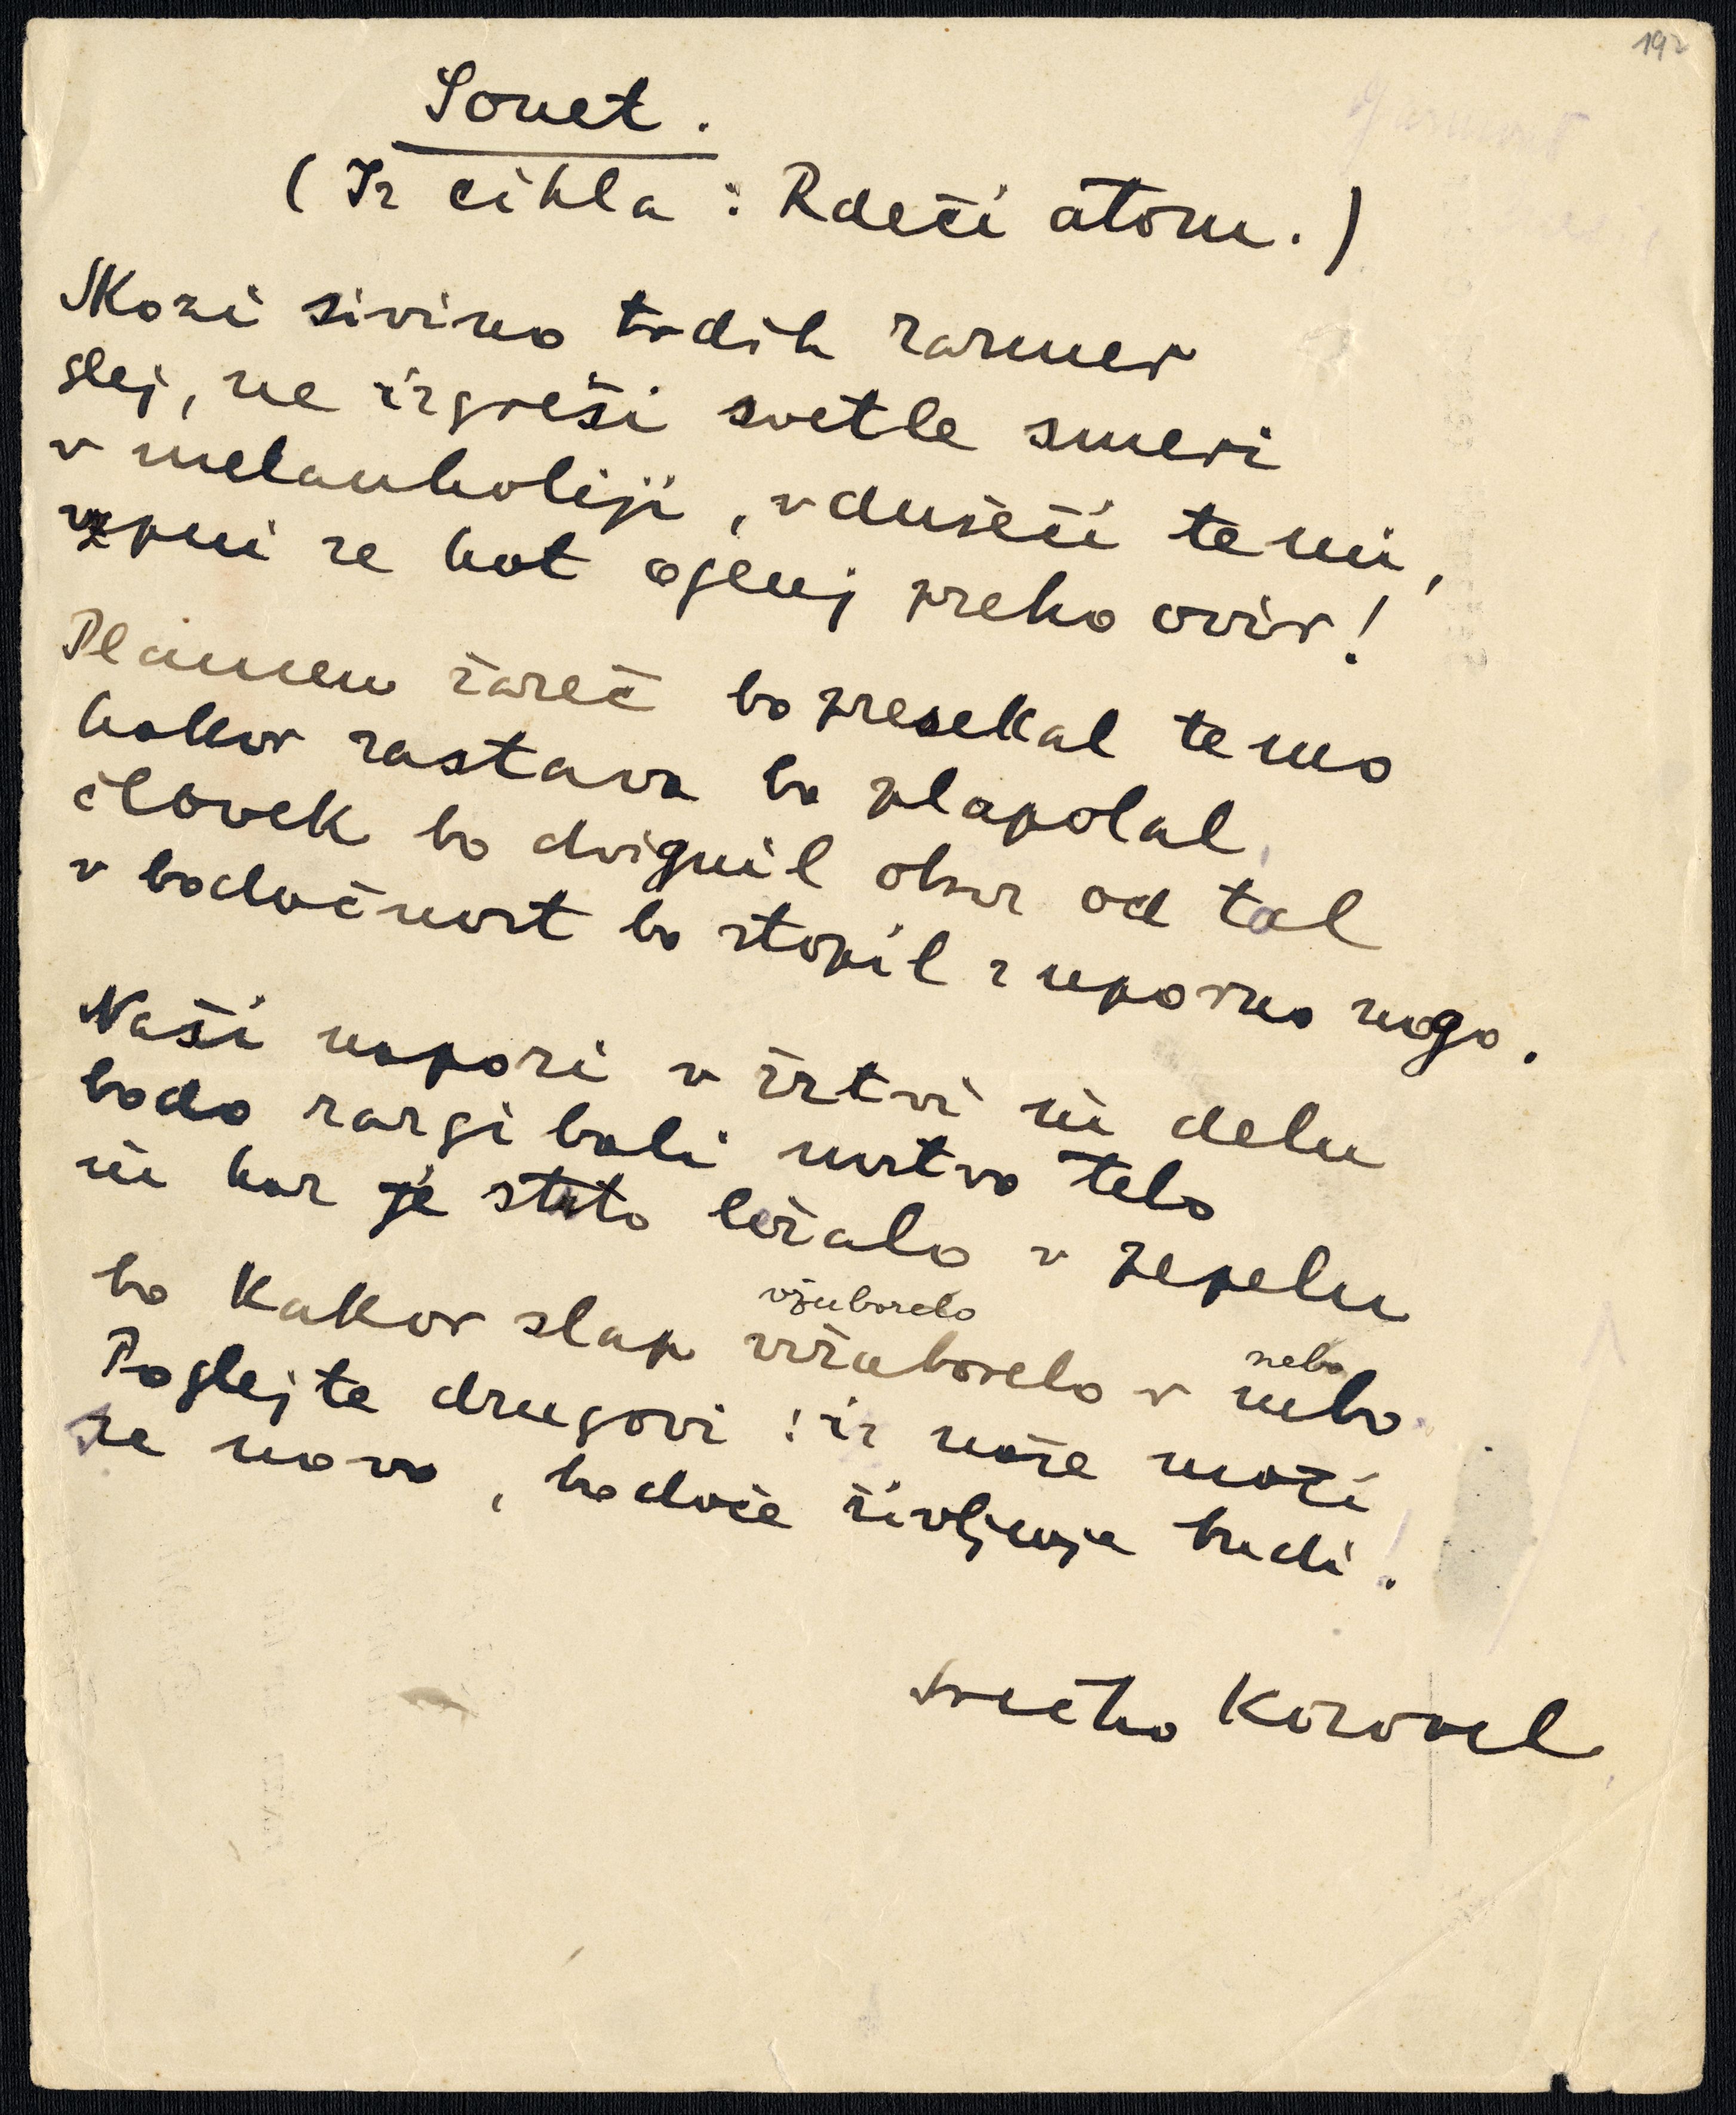 192
Sonet.
(Iz cikla: Rdeči atom.)
Skozi sivino trdih razmer
glej, ne izgreši svetle smeri
v melanholiji, v dušeči temi,
vzpni se kot ogenj preko ovir!
Plamen žareč bo presekal temo
kakor zastava bo plapolal,
človek bo dvignil obraz od tal
v bodočnost bo stopil z uporno nogo.
Naši napori v žrtvi in delu
bodo razgibali mrtvo telo
in kar je strto ležalo v pepelu
vzuborelo nebo
bo kakor slap vzžuborelo v nebo.
Poglejte drugovi: iz naše moči
se novo, bodoče življenje budi!
Srečko Kosovel